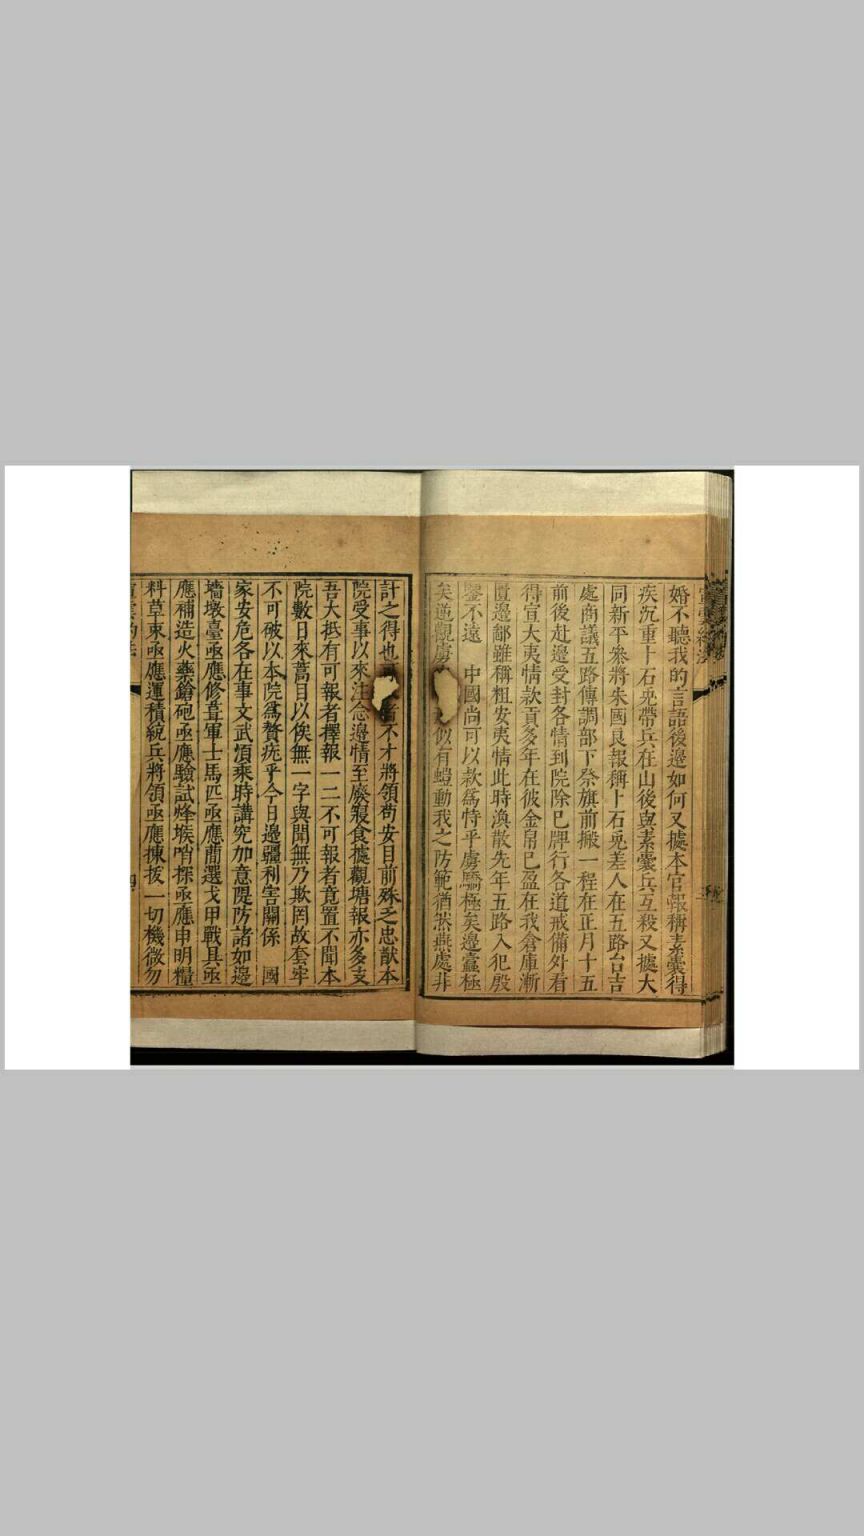 婚不聽我的言語後邊如何又據本官報稱素囊得
疾沉重卜石兎帶兵在山後與素囊兵互殺又據大
同新平叅將朱國良報稱卜石兎差人在五路台吉
處商議五路傳調部下祭旗前搬一程在正月十五
前後赴邊受封各情到院除已牌行各道戒備外看
得宣大夷情款貢多年在彼金帛已盈在我倉庫漸
匱邊鄙雖稱粗安夷情此時渙散先年五路入犯殷
鑒不遠 中國尚可以款爲恃乎虜驕極矣邊蠹極
矣邇觀虜 似有螘動我之防範猶然燕處非
計之得也 不才將領苟安目前殊乏忠猷本
院受事以來注念邊情至廢寢食據觀塘報亦多支
吾大抵有可報者擇報一二不可報者竟置不聞本
院數日來蒿目以俟無一字與聞無乃欺罔故套牢
不可破以本院爲贅疣乎今日邊疆利害關係 國
家安危各在事文武湏乘時講究加意隄防諸如邊
墻墩臺亟應修葺軍士馬匹亟應簡選戈甲戰具亟
應補造火藥鎗砲亟應驗試烽堠哨探亟應申明糧
料草束亟應運積統兵將領亟應揀拔一切機微勿